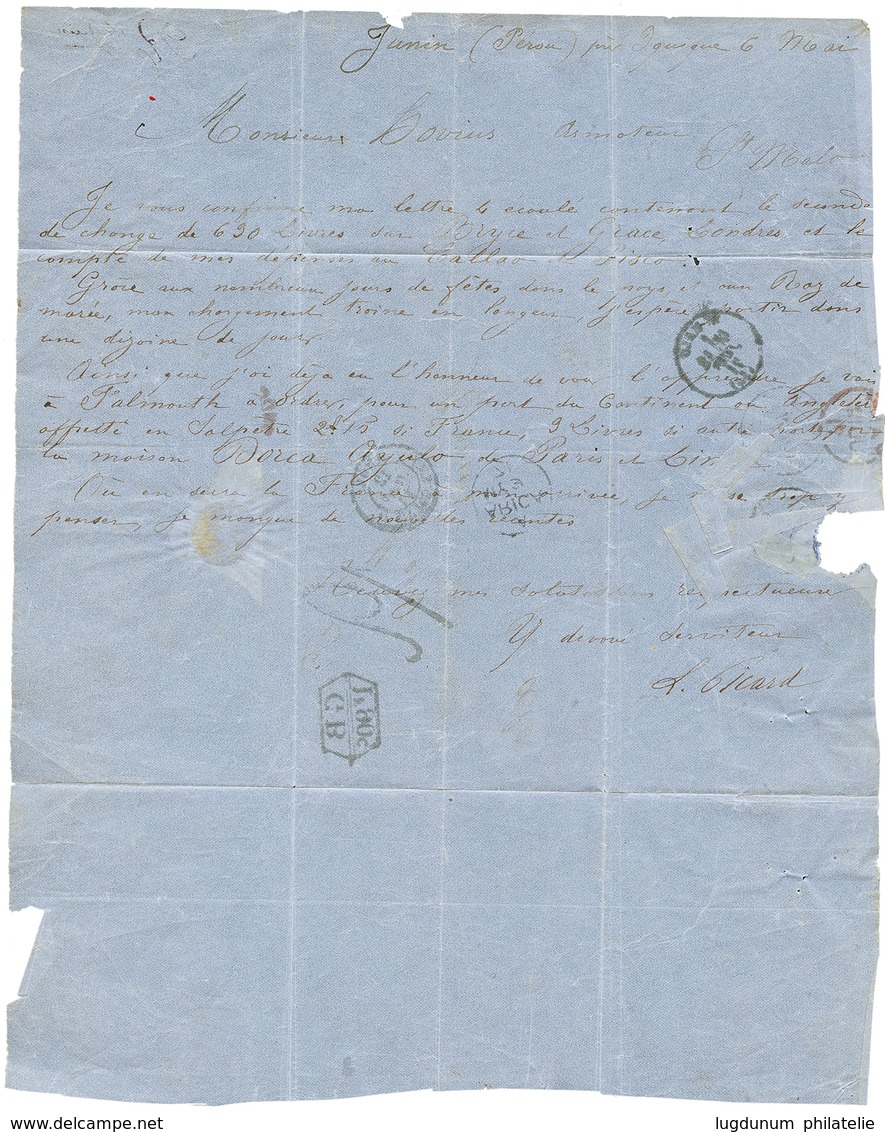 Junin (Pérou) par Iquique 6 Mai
Monsieur Hovius armateur
St Malo
Je vous confirme ma lettre 4 écoulé contenant la seconde
de change de 630 Livres sur Bryce et Grace, Londres et le
compte de mes dépenses au Callao et Pisco.
Grâce aux nombreux jours de fêtes dans le pays, et aux Raz de
marée, mon chargement traine en longueur, j'espère partir dans
une dizaine de jours
Ainsi que j'ai déja eu l'honneur de vous l'apprendre je vais
à Falmouth à ordres, pour un port du Continent ou Angleterre
affrété en Salpêtre 2.15 si France, 3 Livres si autre port, pour
la maison Dorca Ayulo de Paris et
Où en sera la France à mon arrivée, je n'ose trop y
penser, je manque de nouvelles récentes
Recevez mes salutations respectueuses
V devoué Serviteur
L. Picard
ARICA
GB
1F.90c
lugdunum philatelie